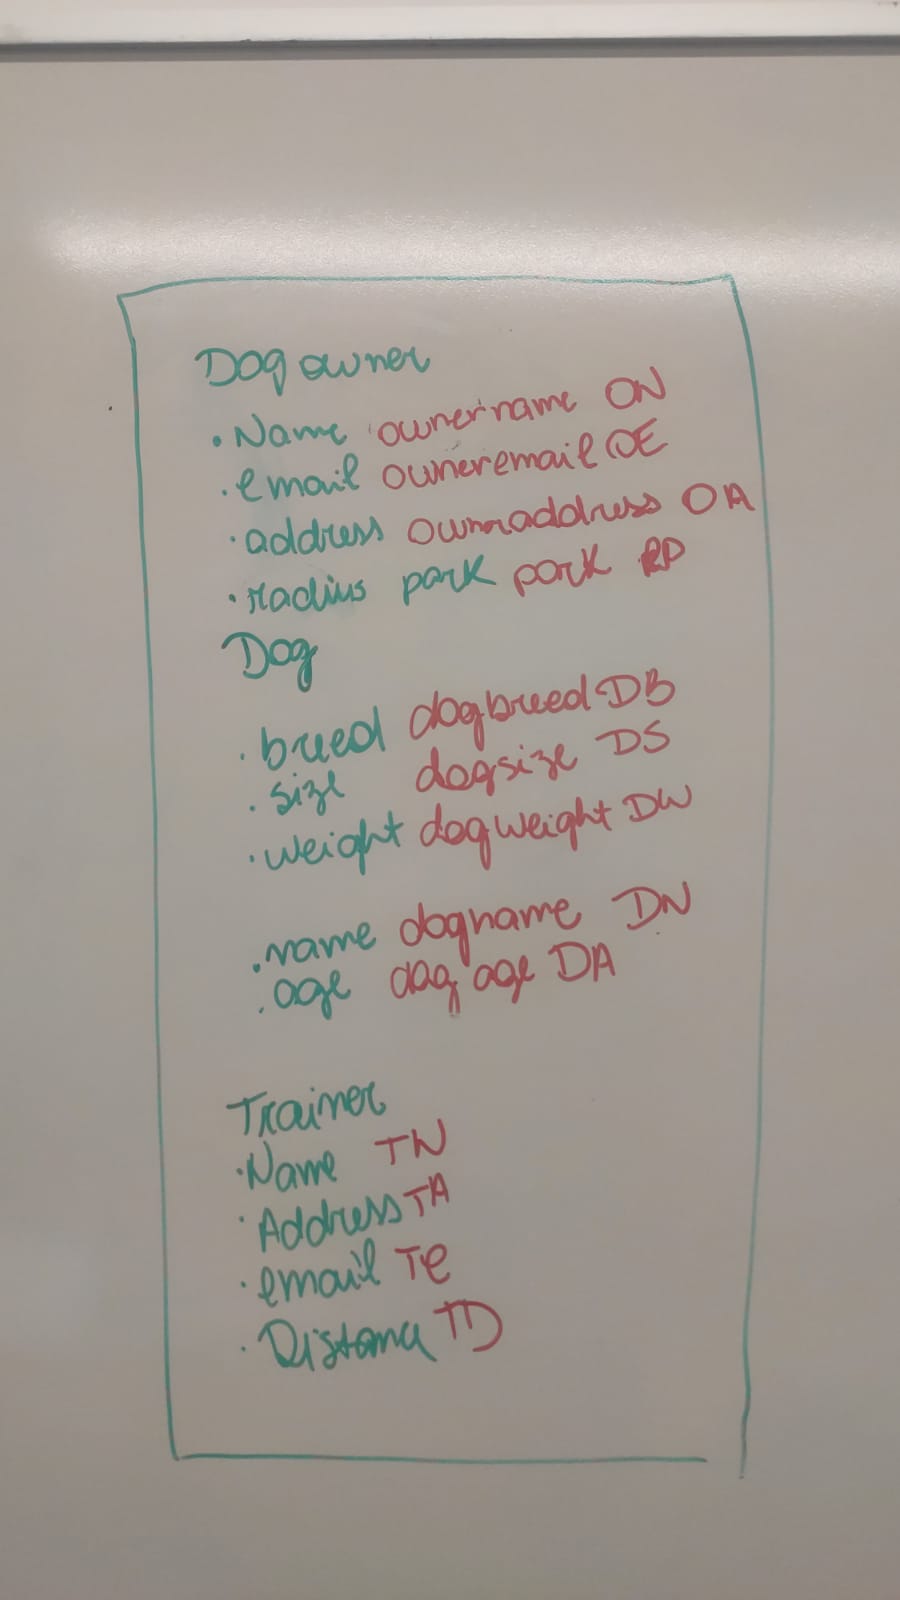 Dog owner
• Name ownername ON
• email owneremail OE
• address owneraddress OA
• radius park park RP
Dog
• breed dogbreed DB
• size dogsize DS
• weight dogweight DW
• name dogname DN
• age dog age DA
Trainer
• Name TN
• Address TA
• email Te
• Distance TD